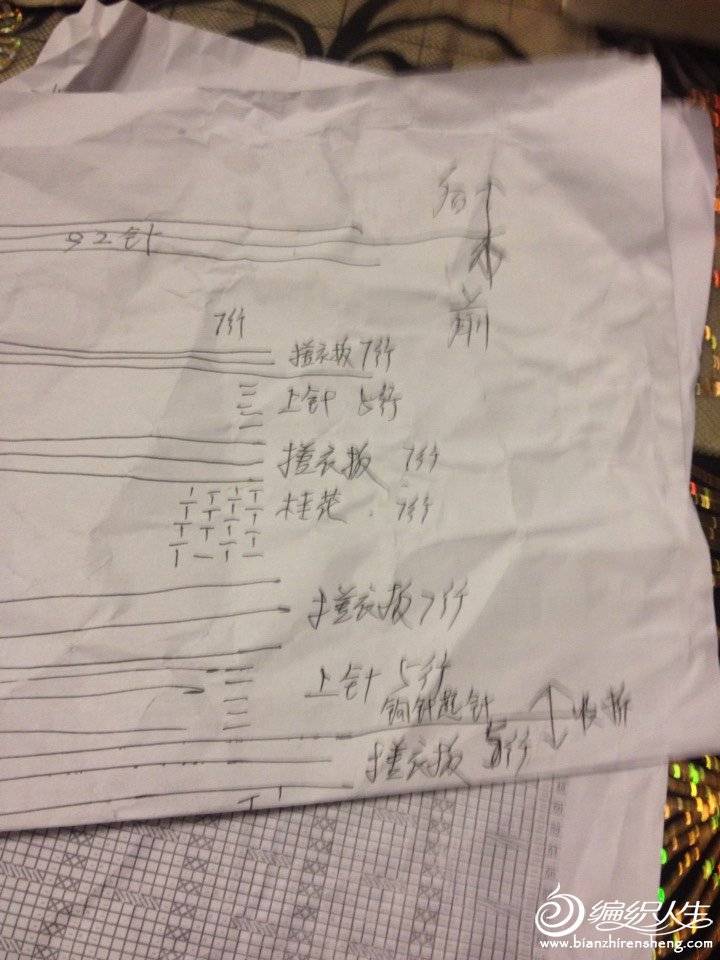 后
92针
前
7行
搓衣板7行
上针 5行
搓衣板 7行
桂花 . 7行
搓衣板7行
上针 5行
钩针起针
收折
搓衣板 5行
编织人生
www.bianzhirensheng.com